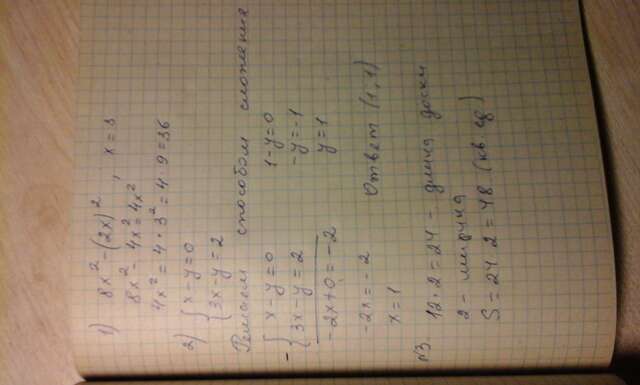 1) 8x² - (2x)², x = 3
8x² - 4x² = 4x²
4x² = 4 · 3² = 4 · 9 = 36
2) { x - y = 0
3x - y = 2
Решаем способом сложения
- { x - y = 0
3x - y = 2
-2x + 0 = -2
-2x = -2
x = 1
1 - y = 0
-y = -1
y = 1
Ответ (1; 1)
№3 12 · 2 = 24 - длина доски
2 - ширина
S = 24 · 2 = 48 (кв. ед)